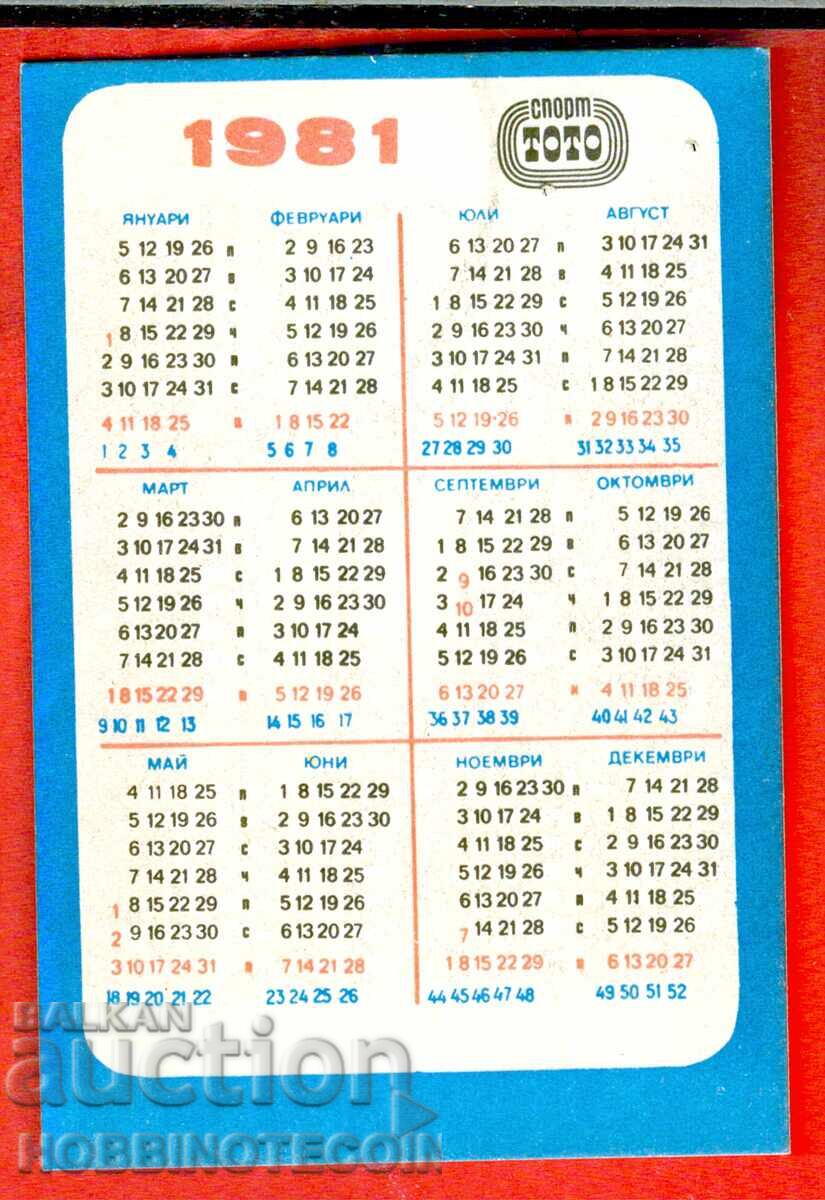 1981
спорт
ТОТО
ЯНУАРИ ФЕВРУАРИ
5 12 19 26 п 2 9 16 23
6 13 20 27 в 3 10 17 24
7 14 21 28 с 4 11 18 25
1 8 15 22 29 ч 5 12 19 26
2 9 16 23 30 п 6 13 20 27
3 10 17 24 31 с 7 14 21 28
4 11 18 25 н 1 8 15 22
1 2 3 4 5 6 7 8
ЮЛИ АВГУСТ
6 13 20 27 п 3 10 17 24 31
7 14 21 28 в 4 11 18 25
1 8 15 22 29 с 5 12 19 26
2 9 16 23 30 ч 6 13 20 27
3 10 17 24 31 п 7 14 21 28
4 11 18 25 с 1 8 15 22 29
5 12 19·26 н 2 9 16 23 30
27 28 29 30 31 32 33 34 35
МАРТ АПРИЛ
2 9 16 23 30 п 6 13 20 27
3 10 17 24 31 в 7 14 21 28
4 11 18 25 с 1 8 15 22 29
5 12 19 26 ч 2 9 16 23 30
6 13 20 27 п 3 10 17 24
7 14 21 28 с 4 11 18 25
1 8 15 22 29 н 5 12 19 26
9 10 11 12 13 14 15 16 17
СЕПТЕМВРИ ОКТОМВРИ
7 14 21 28 п 5 12 19 26
1 8 15 22 29 в 6 13 20 27
2 9 16 23 30 с 7 14 21 28
3 10 17 24 ч 1 8 15 22 29
4 11 18 25 п 2 9 16 23 30
5 12 19 26 с 3 10 17 24 31
6 13 20 27 н 4 11 18 25
36 37 38 39 40 41 42 43
МАЙ ЮНИ
4 11 18 25 п 1 8 15 22 29
5 12 19 26 в 2 9 16 23 30
6 13 20 27 с 3 10 17 24
7 14 21 28 ч 4 11 18 25
1 8 15 22 29 п 5 12 19 26
2 9 16 23 30 с 6 13 20 27
3 10 17 24 31 н 7 14 21 28
18 19 20 21 22 23 24 25 26
НОЕМВРИ ДЕКЕМВРИ
2 9 16 23 30 п 7 14 21 28
3 10 17 24 в 1 8 15 22 29
4 11 18 25 с 2 9 16 23 30
5 12 19 26 ч 3 10 17 24 31
6 13 20 27 п 4 11 18 25
7 14 21 28 с 5 12 19 26
1 8 15 22 29 н 6 13 20 27
44 45 46 47 48 49 50 51 52
BALKAN
auction
HOBBINOTECOIN